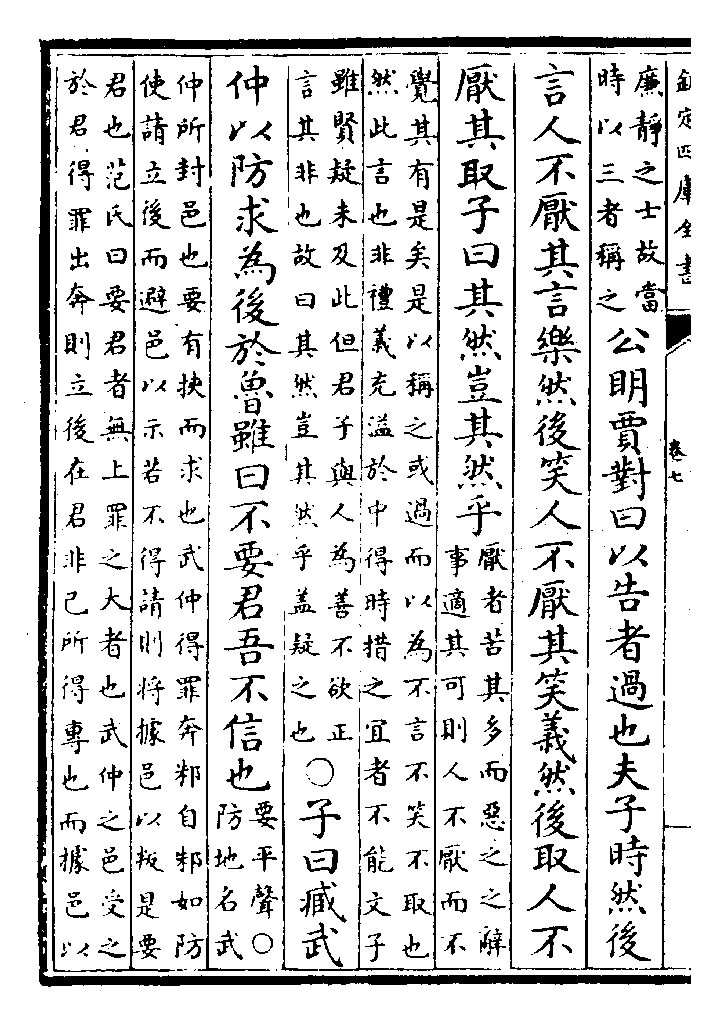 欽定四庫全書
卷七
廉靜之士故當
時以三者稱之
公明賈對曰以告者過也夫子時然後
言人不厭其言樂然後笑人不厭其笑義然後取人不
厭其取子曰其然豈其然乎
厭者苦其多而惡之之辭
事適其可則人不厭而不
覺其有是矣是以稱之或過而以為不言不笑不取也
然此言也非禮義充溢於中得時措之宜者不能文子
雖賢疑未及此但君子與人為善不欲正
言其非也故曰其然豈其然乎盖疑之也
○子曰臧武
仲以防求為後於魯雖曰不要君吾不信也
要平聲○
防地名武
仲所封邑也要有挾而求也武仲得罪奔邾自邾如防
使請立後而避邑以示若不得請則將據邑以叛是要
君也范氏曰要君者無上罪之大者也武仲之邑受之
於君得罪出奔則立後在君非己所得專也而據邑以